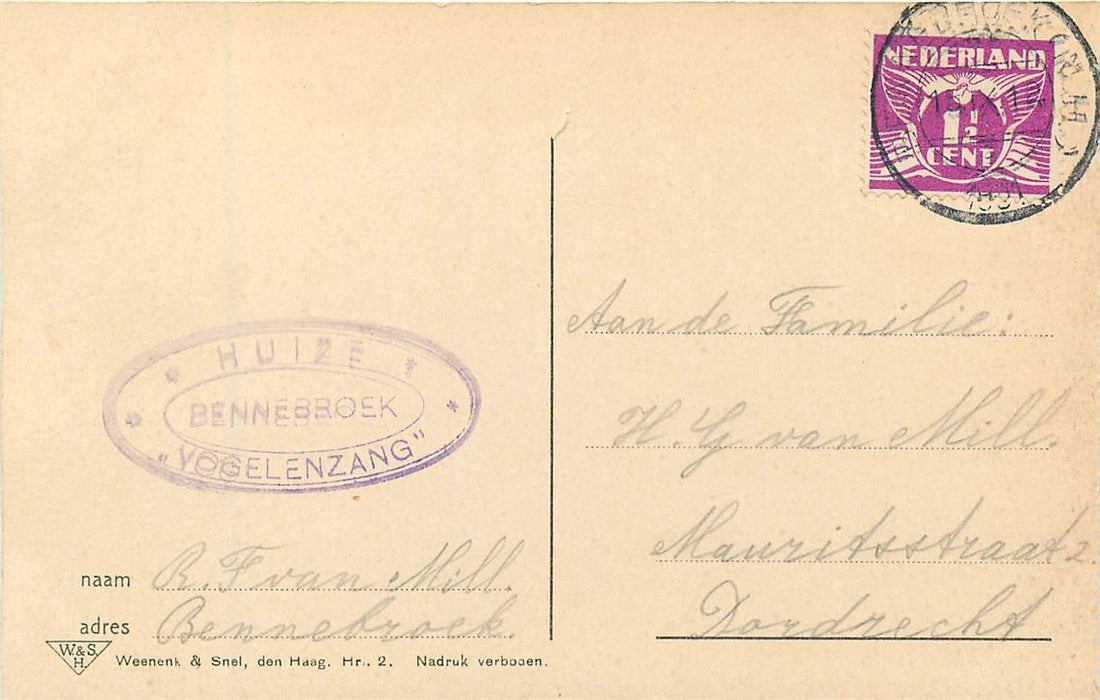 NEDERLAND
1½
CENT
1931
HUIZE
BENNEBROEK
„VOGELENZANG"
Aan de Familie:
H. G van Mill.
Mauritsstraat 2.
Dordrecht
naam R. F van Mill.
adres Bennebroek.
W.&S.
H.
Weenenk & Snel, den Haag. Hr. 2. Nadruk verboden.